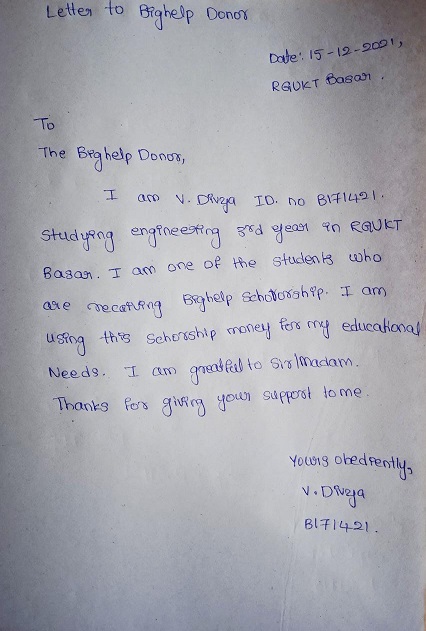 Letter to Bighelp Donor
Date: 15-12-2021,
RGUKT Basar.
To
The Bighelp Donor,
I am V. Divya ID. no B171421.
Studying engineering 3rd year in RGUKT
Basar. I am one of the students who
are receiving Bighelp Scholorship. I am
using this Schorship money for my educational
Needs. I am greatful to Sir/Madam.
Thanks for giving your support to me.
Yours obediently,
V. Divya
B171421.